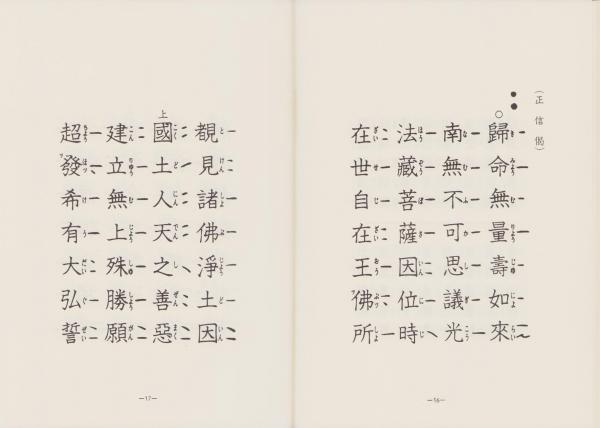 （正信偈）
歸命無量壽如來
南無不可思議光
法藏菩薩因位時
在世自在王佛所
—16—
覩見諸佛淨土因
上
國土人天之善惡
建立無上殊勝願
超發希有大弘誓
—17—